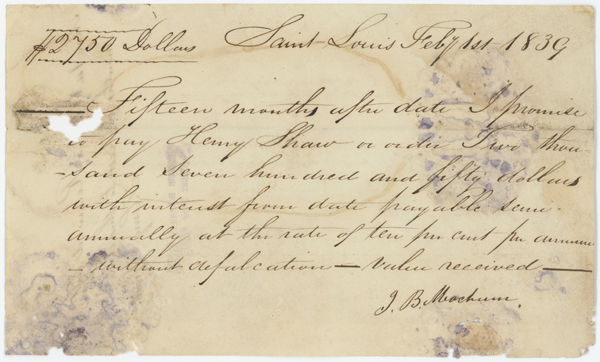 $2750 Dollars Saint Louis Feby 1st 1839
Fifteen months after date I promise
to pay Henry Shaw or order Two thou
-sand Seven hundred and fifty dollars
with interest from date payable semi-
annually at the rate of ten per cent per annum
– without defalcation – value received –
J. B.